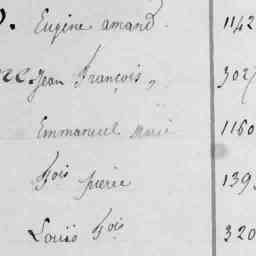 Eugène amand. 1142
Jean François, 302
Emmanuel Marie 1160
fois pierre 139
Louis fois 320